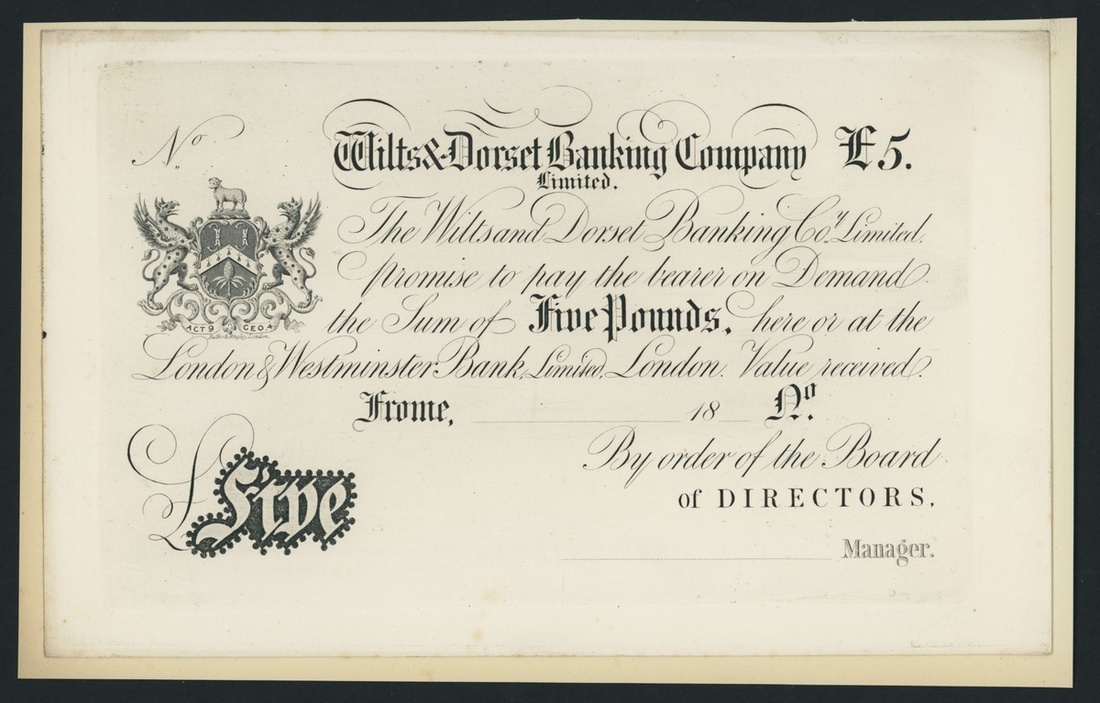 No
Wilts & Dorset Banking Company £5.
Limited.
The Wilts and Dorset Banking Coy. Limited.
promise to pay the bearer on Demand
the Sum of Five Pounds, here or at the
London & Westminster Bank, Limited, London. Value received.
ACT 9 GEO 4
Frome, 18 No.
By order of the Board
of DIRECTORS.
£Five
Manager.